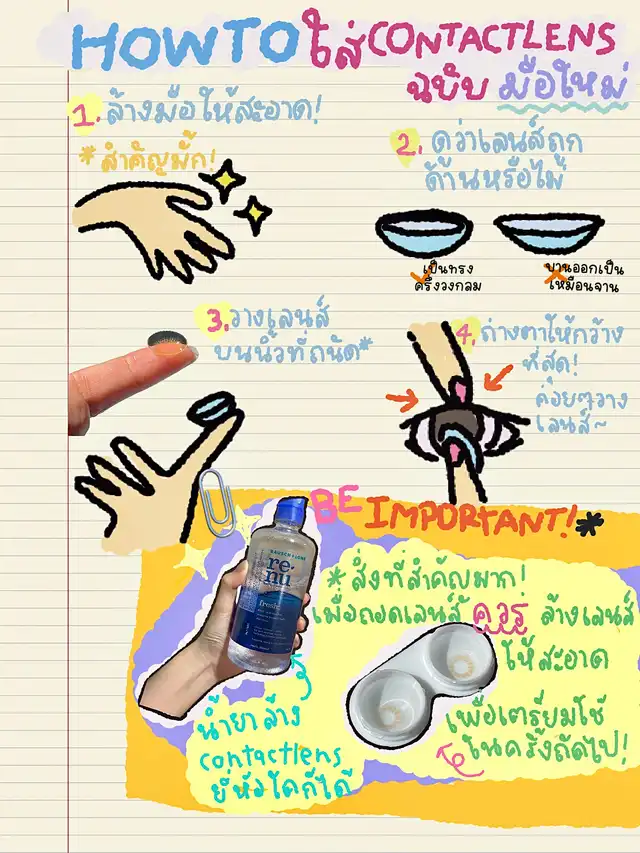 HOW TO ใส่ CONTACTLENS
ฉบับ มือใหม่
1. ล้างมือให้สะอาด!
*สำคัญมั๊ก!
2. ดูว่าเลนส์ถูก
ด้านหรือไม่
เป็นทรง
ครึ่งวงกลม
บานออกเป็น
เหมือนจาน
3. วางเลนส์
บนนิ้วที่ถนัด*
4. ถ่างตาให้กว้าง
ที่สุด!
ค่อยๆวาง
เลนส์~
BE IMPORTANT!*
*สิ่งที่สำคัญมาก!
เมื่อถอดเลนส์ ควร ล้างเลนส์
ให้สะอาด
เพื่อเตรียมใช้
ในครั้งถัดไป!
BAUSCH + LOMB
re·nu
fresh
น้ำยาล้าง
contactlens
ยี่ห้อใดก็ได้